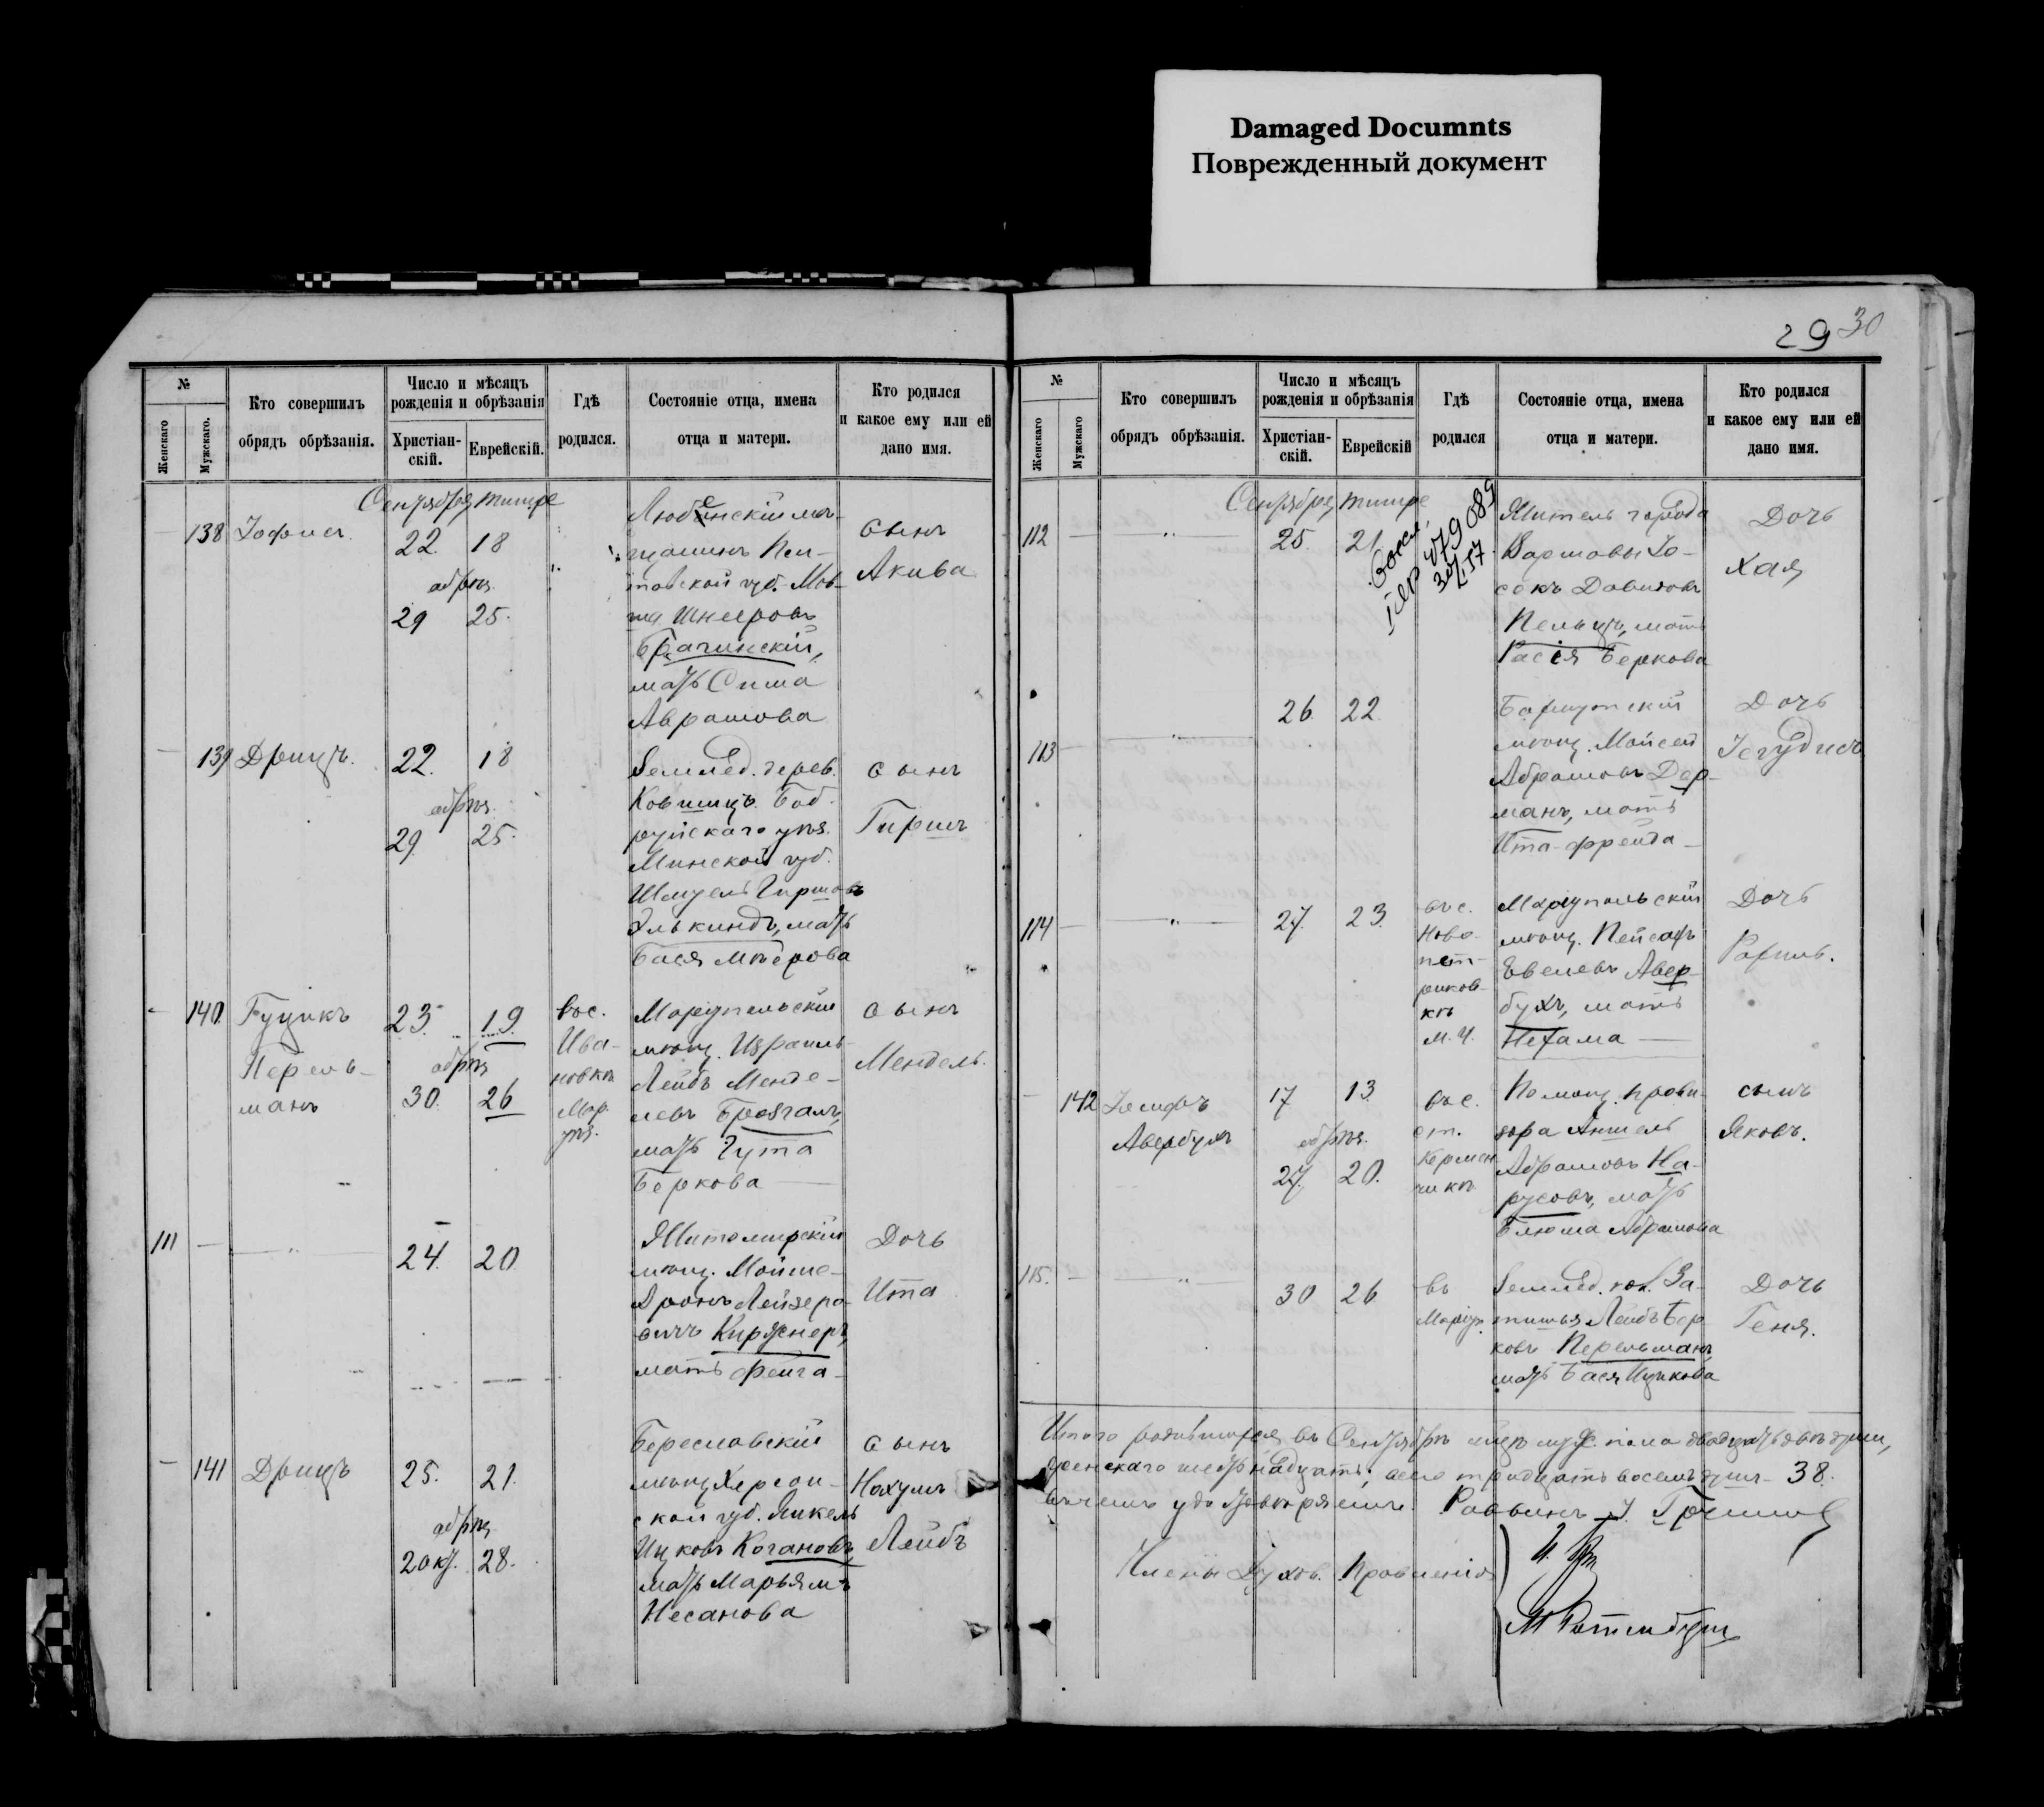 Damaged Documnts
Поврежденный документ
29 30
№
Женскаго
Мужскаго.
Кто совершилъ
обрядъ обрѣзанія.
Число и мѣсяцъ
рожденія и обрѣзанія
Христіан-
скій.
Еврейскій.
Гдѣ
родился.
Состояніе отца, имена
отца и матери.
Кто родился
и какое ему или ей
дано имя.
Сентября Тишре
138
22. 18
обрѣз.
29 25.
мѣ-
щанинъ
губ.
Шнееровъ
мать Сима
Аврамова
сынъ
Акива
139
22. 18
обрѣз.
29. 25.
Землед. дерев.
Боб-
руйскаго уѣз.
Минской губ.
Гиршовъ
Элькиндъ, мать
Бася Мѣерова
сынъ
Гиршъ
140
Гуцикъ
Перель-
манъ
23. 19
обрѣз
30. 26
въ с.
Ива-
новкѣ
Мар.
уѣз.
Маріупольскій
мѣщ. Израиль
Лейбъ Менде-
левъ
мать Гута
Беркова
сынъ
Мендель.
111
24. 20
Житомирскій
мѣщ. Мойше-
Аронъ Лейзеро-
вичъ Киржнеръ,
мать Фейга
Дочь
Ита
141
25. 21.
обрѣз
2 окт. 28.
Береславскій
мѣщ. Херсон-
ской губ. Янкель
Ицковъ Когановъ,
мать Марьямъ
Несанова
сынъ
Нахумъ
Лейбъ
№
Женскаго
Мужскаго
Кто совершилъ
обрядъ обрѣзанія.
Число и мѣсяцъ
рожденія и обрѣзанія
Христіан-
скій.
Еврейскій
Гдѣ
родился
Состояніе отца, имена
отца и матери.
Кто родился
и какое ему или ей
дано имя.
Сентября Тишре
112
25. 21
479089
Житель города
Варшавы Іо-
секъ Давидовъ
Пельцъ, мать
Рася Беркова
Дочь
Хая
113
26. 22
мѣщ. Мойсей
Абрамовъ Дер-
манъ, мать
Ита-Фрейда
Дочь
Іегудисъ
114
27. 23.
въ с.
Ново-
пет-
риков-
кѣ
М. У.
Маріупольскій
мѣщ. Пейсахъ
Евелевъ Авер-
бухъ, мать
Нехама
Дочь
Рахиль.
142
Іосифъ
Авербухъ
17 13
обрѣз.
24. 20.
въ с.
ст.
Кермен-
чикъ
Помощ. прови-
зора Аншель
Абрамовъ На-
русовъ, мать
Блюма Абрамова
сынъ
Яковъ.
115.
30 26
въ
Маріуп.
Землед. кол. За-
тишья Лейбъ Бер-
ковъ Перельманъ,
мать Бася Ицикова
Дочь
Геня.
Итого родившихся въ Сентябрѣ м-цѣ муж. пола двадцать двѣ души,
женскаго шестнадцать, всего тридцать восемь душъ - 38.
въ чемъ удостовѣряемъ. Раввинъ
Члены Духов. Правленія